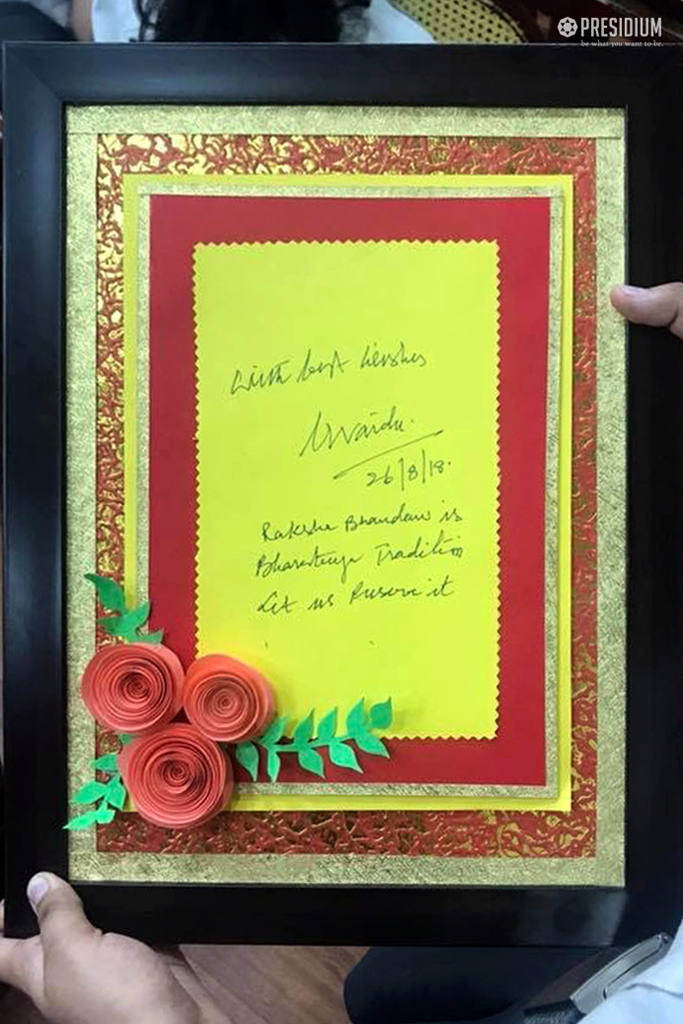 PRESIDIUM
be what you want to be.
With best wishes
26/8/18.
Raksha Bhandan is
Bharatiya Tradition
Let us Preserve it